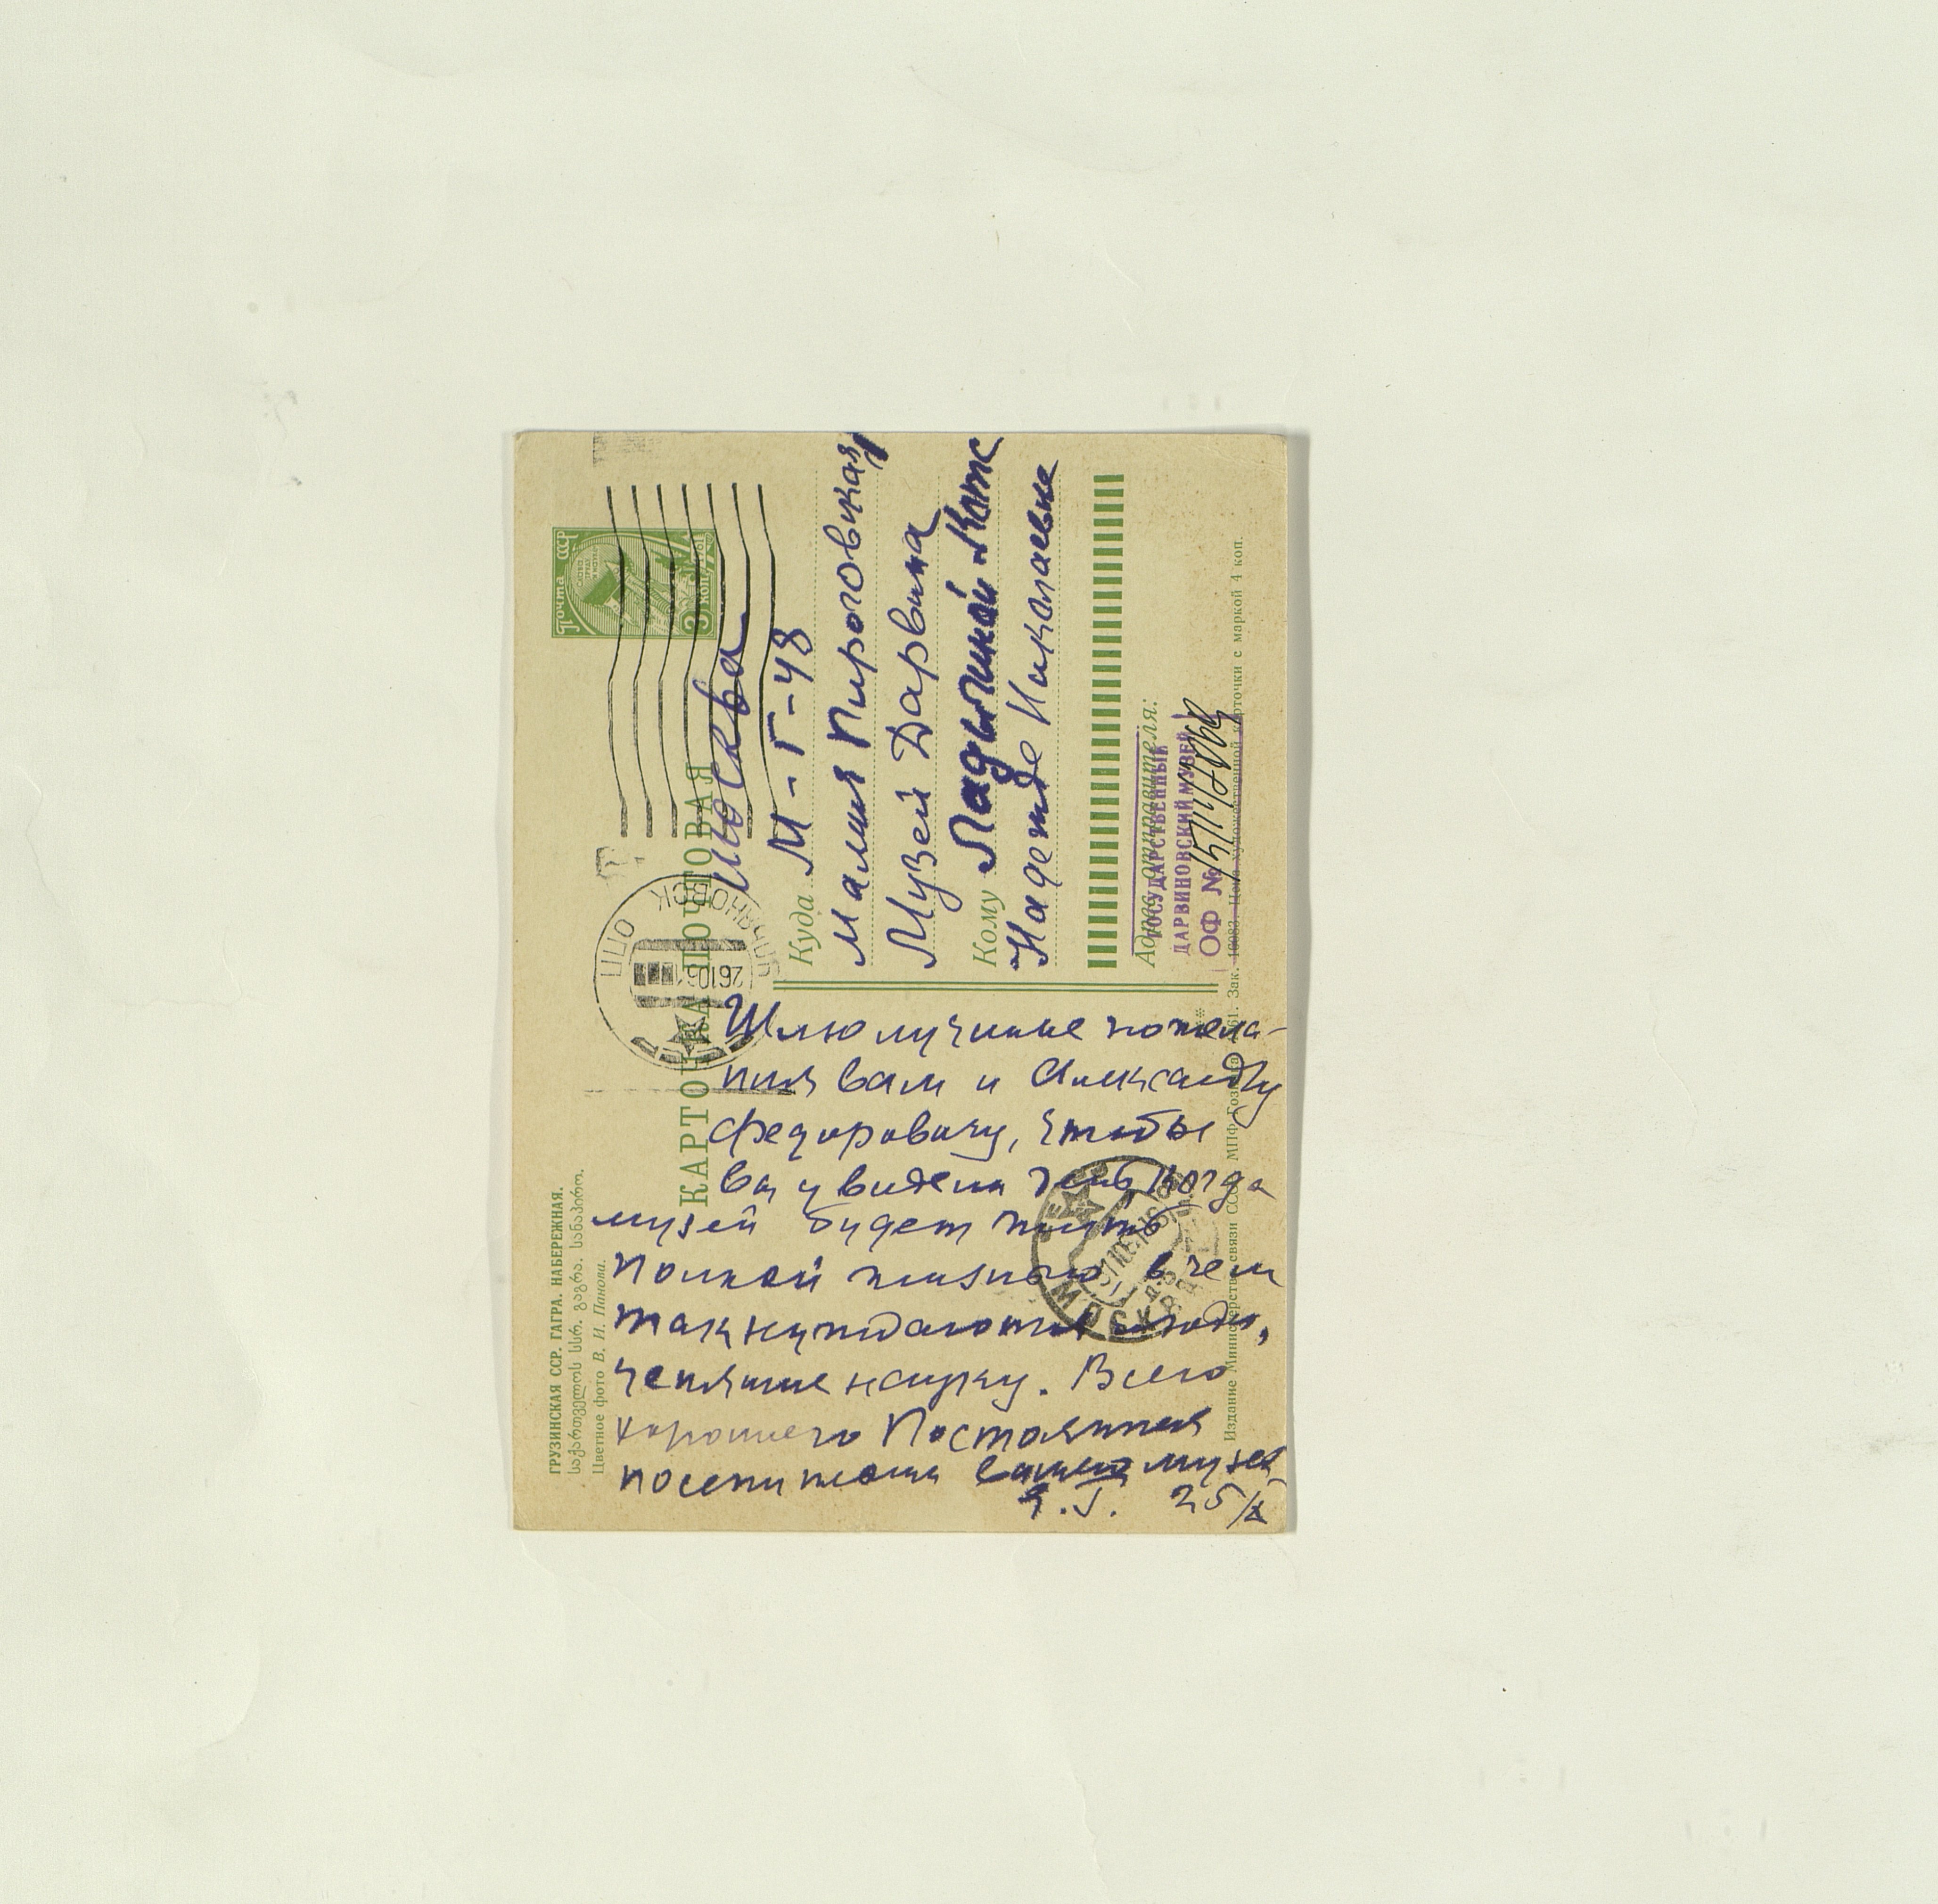 ГРУЗИНСКАЯ ССР. ГАГРА. НАБЕРЕЖНАЯ.
საქართველოს სსრ. გაგრა. სანაპირო.
Цветное фото В. И. Панова.
КАРТОЧКА ПОЧТОВАЯ
Почта СССР
3 коп
1961
УЛЬЯНОВСК
МОСКВА
Шлю лучшие пожела-
ния вам и Александру
Федоровичу, чтобы
вы увидели день когда
музей будет жить
полной жизнью в чем
так нуждаются люди,
ценящие науку. Всего
хорошего Постоянная
посетительн вашего музея
25/X
Москва
Куда М-Г-48
Малая Пироговская
Музей Дарвина
Кому Ладыгиной-Котс
Надежде Николаевне
Адрес отправителя:
ГОСУДАРСТВЕННЫЙ
ДАРВИНОВСКИЙ МУЗЕЙ
ОФ №
Издание Министерства связи СССР. МПФ Гознака. 1961. Зак. 16083. Цена художественной карточки с маркой 4 коп.